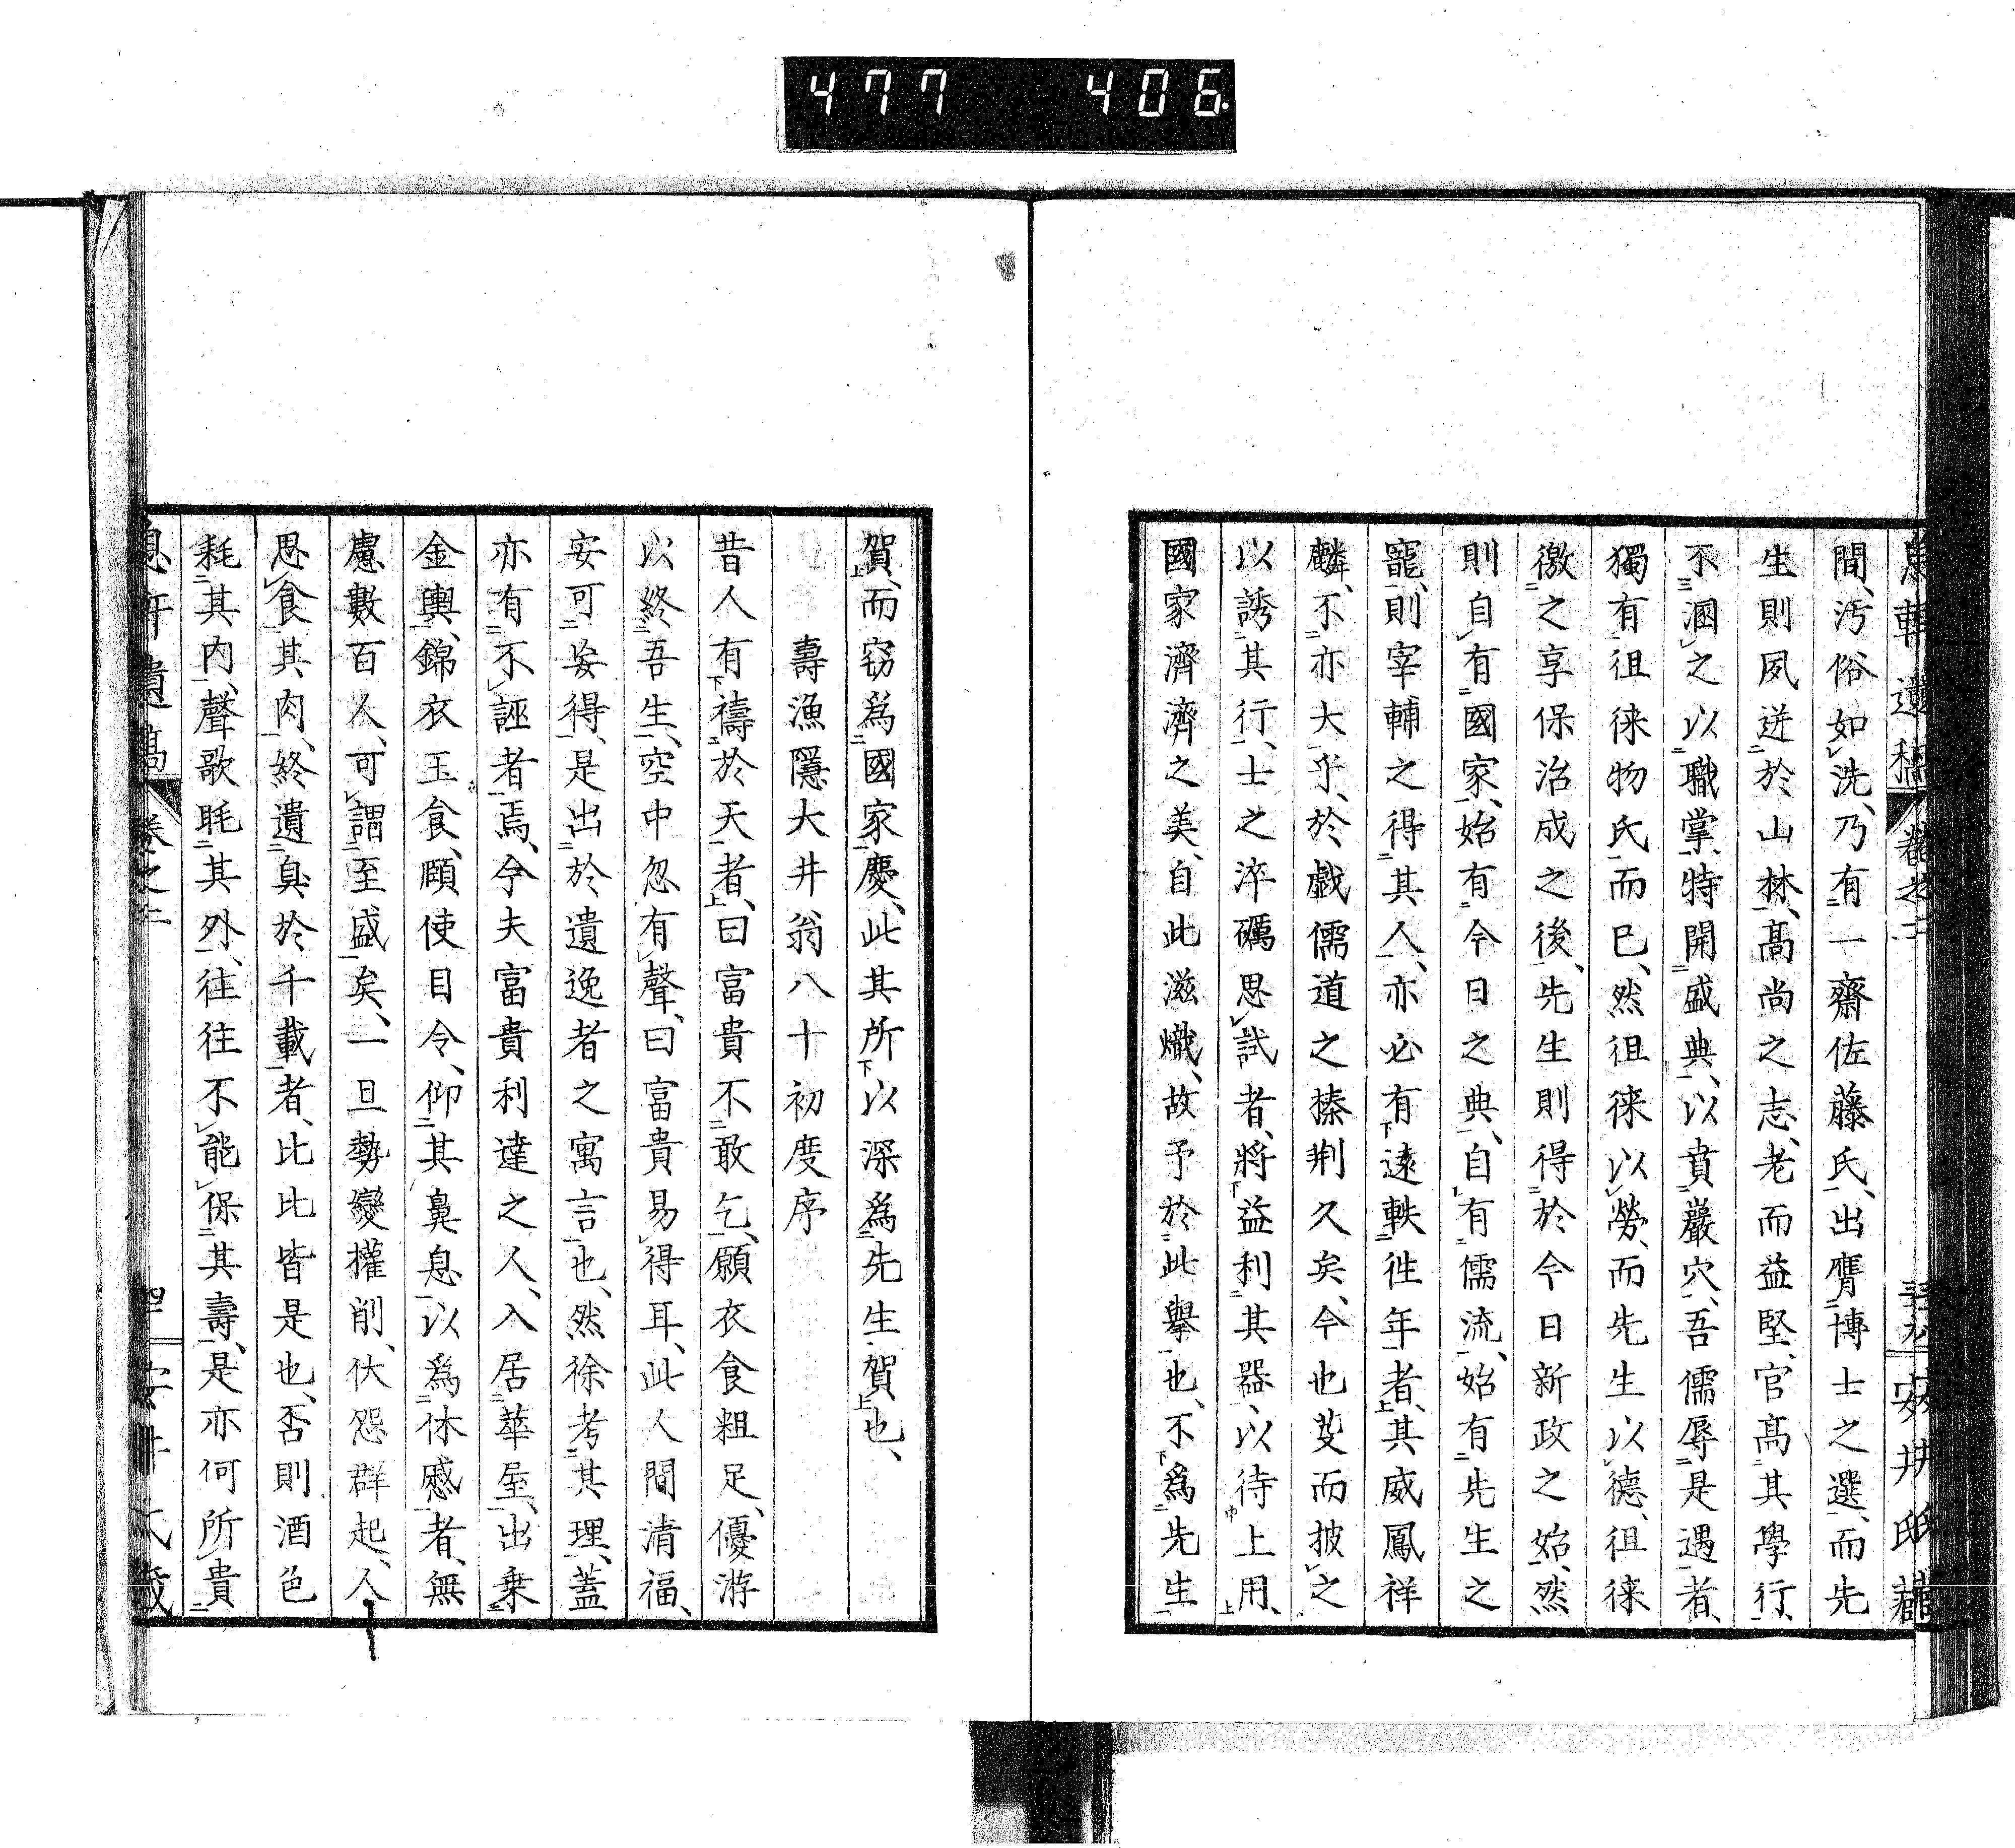 477 406
息軒遺稿 卷之二 安井氏藏
間、汚俗如洗、乃有一齋佐藤氏、出膺博士之選、而先
生則夙迸於山林、高尚之志、老而益堅、官高其學行、
不溷之以職掌、特開盛典、以賁巖穴、吾儒辱是遇者、
獨有徂徠物氏而已、然徂徠以勞、而先生以德、徂徠
徼之享保治成之後、先生則得於今日新政之始、然
則自有國家、始有今日之典、自有儒流、始有先生之
寵、則宰輔之得其人、亦必有遠軼徃年者、其威鳳祥
麟、不亦大乎、於戲儒道之榛荆久矣、今也芟而披之
以誘其行、士之淬礪思試者、將益利其器、以待上用、
國家濟濟之美、自此滋熾、故予於此擧也、不爲先生
賀、而窃爲國家慶、此其所以深爲先生賀也、
壽漁隱大井翁八十初度序
昔人有禱於天者、曰富貴不敢乞、願衣食粗足、優游
以終吾生、空中忽有聲、曰富貴易得耳、此人間清福、
安可妄得、是出於遺逸者之寓言也、然徐考其理、蓋
亦有不誣者焉、今夫富貴利達之人、入居華屋、出乗
金輿、錦衣玉食、頤使目令、仰其鼻息、以爲休慼者、無
慮數百人、可謂至盛矣、一旦勢變權削、伏怨群起、人
思食其肉、終遺臭於千載者、比比皆是也、否則酒色
耗其内、聲歌眊其外、往往不能保其壽、是亦何所貴
息軒遺稿 卷之二 安井氏藏